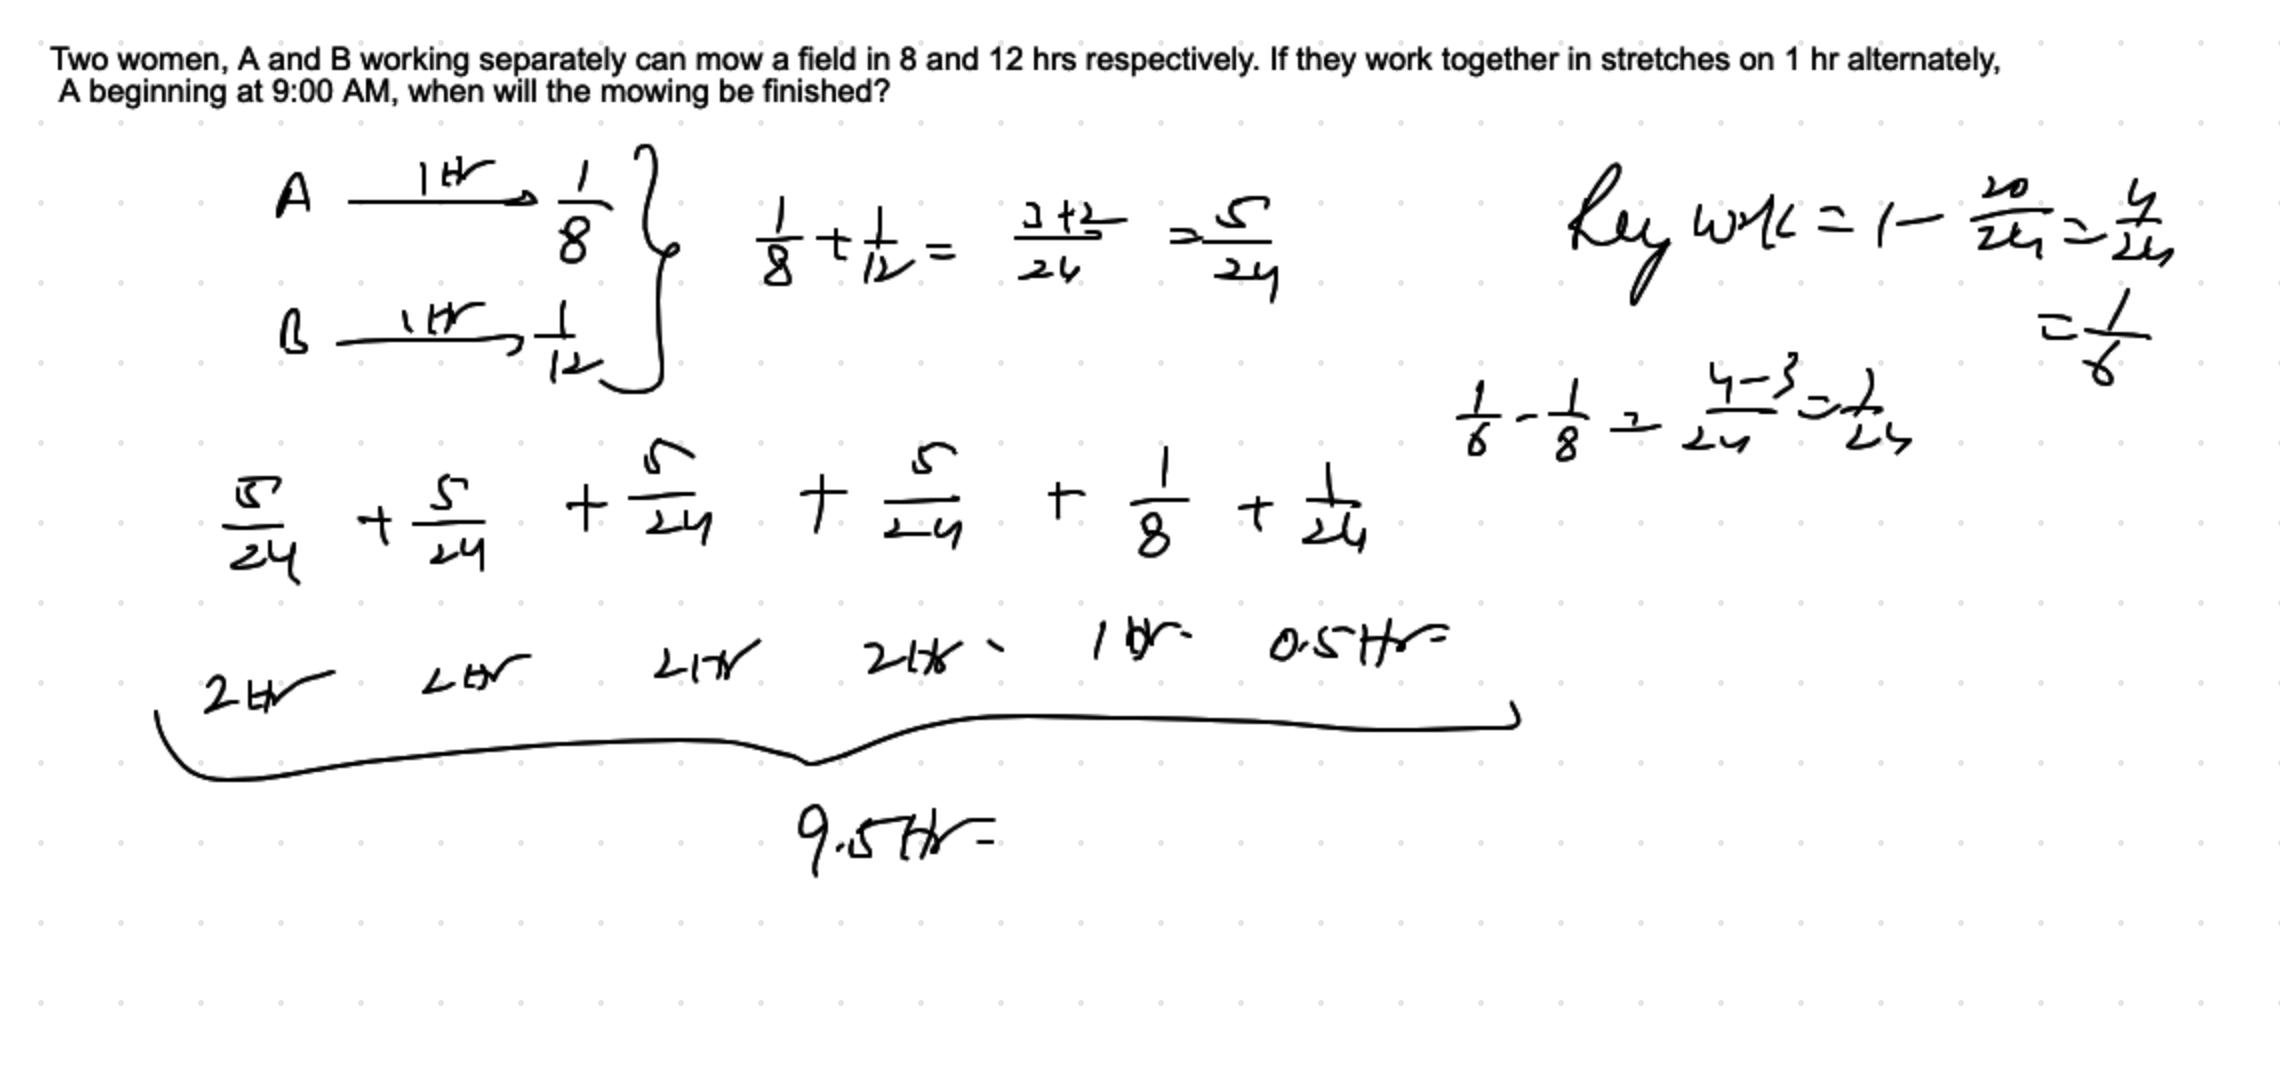 Two women, A and B working separately can mow a field in 8 and 12 hrs respectively. If they work together in stretches on 1 hr alternately,
A beginning at 9:00 AM, when will the mowing be finished?
A 1 Hr → 1/8
B 1 Hr → 1/12
1/8 + 1/12 = 3+2/24 = 5/24
work = 1 - 20/24 = 4/24
= 1/6
1/6 - 1/8 = 4-3/24 = 1/24
5/24 + 5/24 + 5/24 + 5/24 + 1/8 + 1/24
2 Hr 2 Hr 2 Hr 2 Hr 1 Hr 0.5 Hr
9.5 Hr